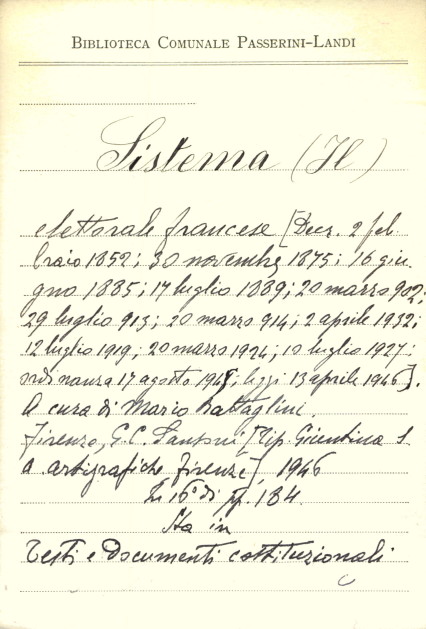 BIBLIOTECA COMUNALE PASSERINI-LANDI
Sistema (Il)
elettorale francese [Decr. 2 feb
braio 1852; 30 novembre 1875; 16 giu.
gno 1885; 17 luglio 1889; 20 marzo 902;
29 luglio 913; 20 marzo 914; 2 aprile 1932;
12 luglio 1919; 20 marzo 1924; 10 luglio 1927;
ordinanza 17 agosto 1945; leggi 13 aprile 1946].
A cura di Mario Battaglini.
Firenze, G. C. Sansoni [Tip. Giuntina
artigrafiche Firenze], 1946
In 16° di pp. 184.
Sta in
Testi e documenti costituzionali